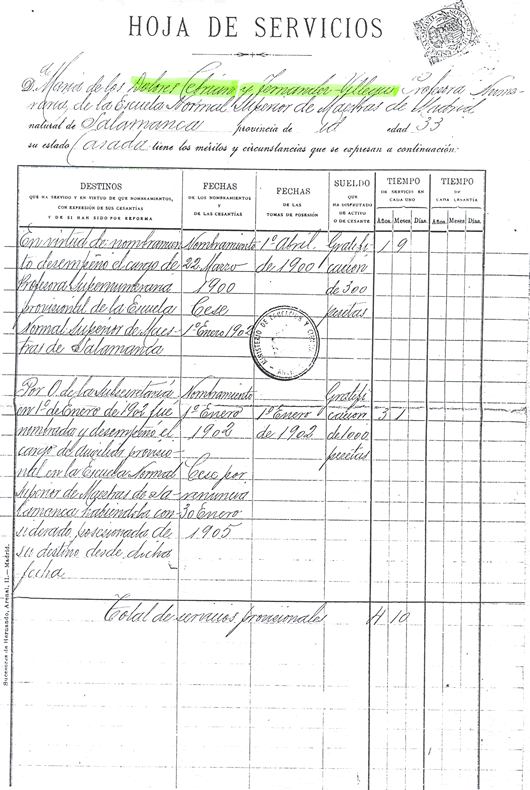 HOJA DE SERVICIOS
Dª Maria de los Dolores Cebrián y Fernandez-Villegas Profesora Nume-
raria, de la Escuela Normal Superior de Maestras de Madrid
natural de Salamanca provincia de id edad 33
su estado Casada tiene los méritos y circunstancias que se expresan a continuación:
DESTINOS
QUE HA SERVIDO Y EN VIRTUD DE QUE NOMBRAMIENTOS,
CON EXPRESIÓN DE SUS CESANTÍAS
Y DE SI HAN SIDO POR REFORMA
FECHAS
DE LOS NOMBRAMIENTOS
Y
DE LAS CESANTÍAS
FECHAS
DE LAS
TOMAS DE POSESIÓN
SUELDO
QUE HA DISFRUTADO
DE ACTIVO
O DE CESANTE
TIEMPO
DE SERVICIO EN
CADA UNO
Años. Meses. Días.
TIEMPO
DE
CADA CESANTÍA
Años. Meses. Días.
En virtud de nombramien
to desempeñó el cargo de
Profesora Supernumeraria
provisional de la Escuela
Normal Superior de Maes-
tras de Salamanca
Nombramiento
22 Marzo
1900
Cese
1º Enero 1902
1º Abril.
de 1900
Gratifi
cación
de 300
pesetas
1 9
MINISTERIO DE EDUCACION Y CIENCIA
Por O. de la Subsecretaría
en 1º de Enero de 1902 fue
nombrada y desempeñó el
cargo de auxiliar provisio-
nal en la Escuela Normal
Superior de Maestras de Sa-
lamanca habiéndola con-
siderado posesionada de
su destino desde dicha
fecha
Nombramiento
1º Enero
1902
Cese por
renuncia
30 Enero
1905
1º Enero
de 1902
Gratifi
cación
de 1000
pesetas
3 1
Total de servicios provisionales 4 10
Sucesores de Hernando, Arenal, 11.—Madrid.